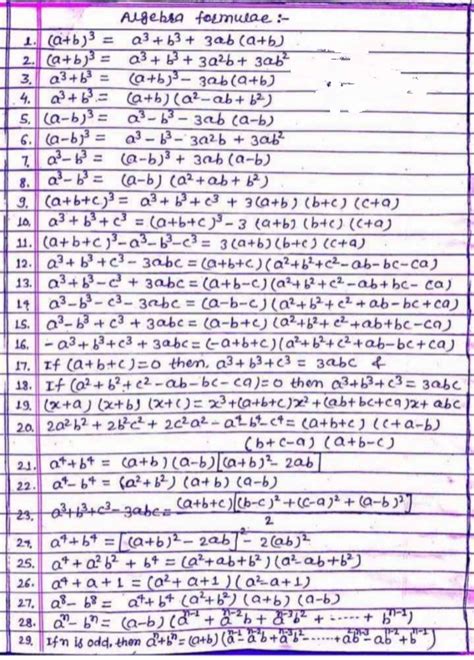 Algebra formulae :-
1. (a+b)³ = a³+b³+3ab(a+b)
2. (a+b)³ = a³+b³+3a²b+3ab²
3. a³+b³ = (a+b)³-3ab(a+b)
4. a³+b³ = (a+b)(a²-ab+b²)
5. (a-b)³ = a³-b³-3ab(a-b)
6. (a-b)³ = a³-b³-3a²b+3ab²
7. a³-b³ = (a-b)³+3ab(a-b)
8. a³-b³ = (a-b)(a²+ab+b²)
9. (a+b+c)³ = a³+b³+c³+3(a+b)(b+c)(c+a)
10. a³+b³+c³ = (a+b+c)³-3(a+b)(b+c)(c+a)
11. (a+b+c)³-a³-b³-c³ = 3(a+b)(b+c)(c+a)
12. a³+b³+c³-3abc = (a+b+c)(a²+b²+c²-ab-bc-ca)
13. a³+b³-c³+3abc = (a+b-c)(a²+b²+c²-ab+bc-ca)
14 a³-b³-c³-3abc = (a-b-c)(a²+b²+c²+ab-bc+ca)
15. a³-b³+c³+3abc = (a-b+c)(a²+b²+c²+ab+bc-ca)
16. -a³+b³+c³+3abc = (-a+b+c)(a²+b²+c²+ab-bc+ca)
17. If (a+b+c)=0 then, a³+b³+c³ = 3abc &
18. If (a²+b²+c²-ab-bc-ca)=0 then a³+b³+c³ = 3abc
19. (x+a)(x+b)(x+c) = x³+(a+b+c)x²+(ab+bc+ca)x+abc
20. 2a²b²+2b²c²+2c²a²-a⁴-b⁴-c⁴ = (a+b+c)(c+a-b)
(b+c-a)(a+b-c)
21. a⁴+b⁴ = (a+b)(a-b)[(a+b)²-2ab]
22. a⁴-b⁴ = (a²+b²)(a+b)(a-b)
23. a³+b³+c³-3abc = (a+b+c)[(b-c)²+(c-a)²+(a-b)²]/2
24. a⁴+b⁴ = [(a+b)²-2ab]²-2(ab)²
25. a⁴+a²b²+b⁴ = (a²+ab+b²)(a²-ab+b²)
26. a⁴+a+1 = (a²+a+1)(a²-a+1)
27. a⁸-b⁸ = a⁴+b⁴(a²+b²)(a+b)(a-b)
28. aⁿ-bⁿ = (a-b)(aⁿ⁻¹+aⁿ⁻²b+aⁿ⁻³b²+ ...... + bⁿ⁻¹)
29. If n is odd, then aⁿ+bⁿ = (a+b)(aⁿ⁻¹-aⁿ⁻²b+aⁿ⁻³b²- ...... +a²bⁿ⁻³-abⁿ⁻²+bⁿ⁻¹)